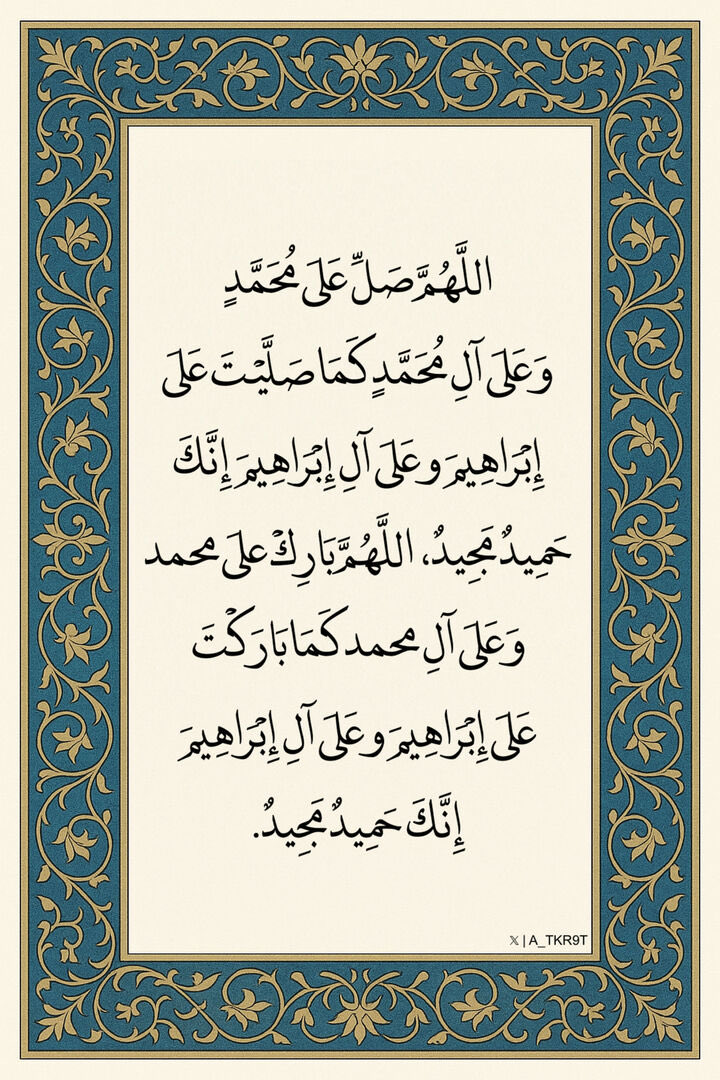 اللَّهُمَّ صَلِّ عَلَى مُحَمَّدٍ
وَعَلَى آلِ مُحَمَّدٍ كَمَا صَلَّيْتَ عَلَى
إِبْرَاهِيمَ وعَلَى آلِ إِبْرَاهِيمَ إِنَّكَ
حَمِيدٌ مَجِيدٌ، اللَّهُمَّ بَارِكْ علَى محمد
وَعَلَى آلِ محمد كَمَا بَارَكْتَ
عَلَى إِبْرَاهِيمَ وعَلَى آلِ إِبْرَاهِيمَ
إِنَّكَ حَمِيدٌ مَجِيدٌ.
𝕏 | A_TKR9T